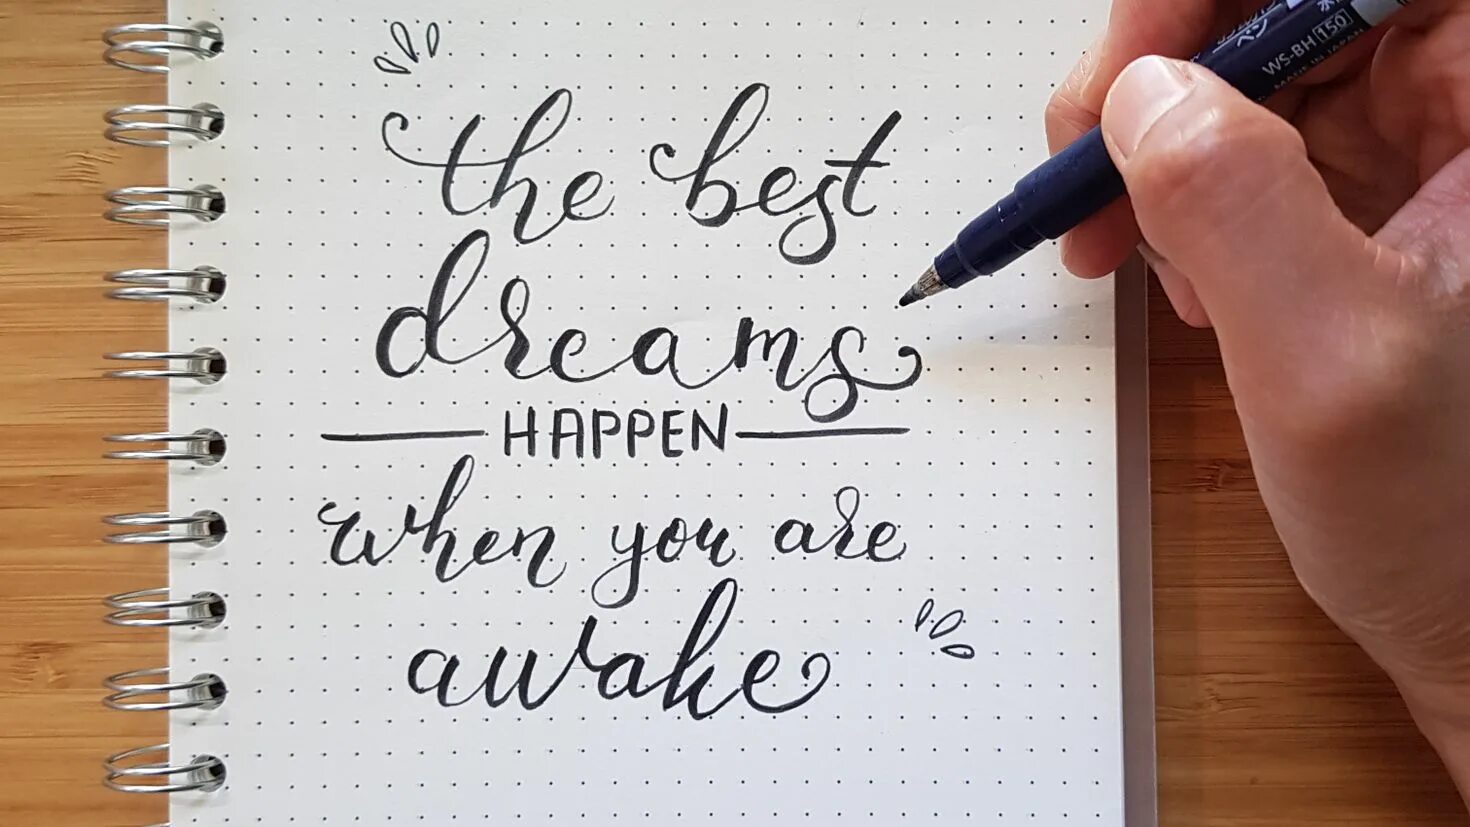 the best
dreams
HAPPEN
when you are
awake
WS-BH 150
MADE IN JAPAN